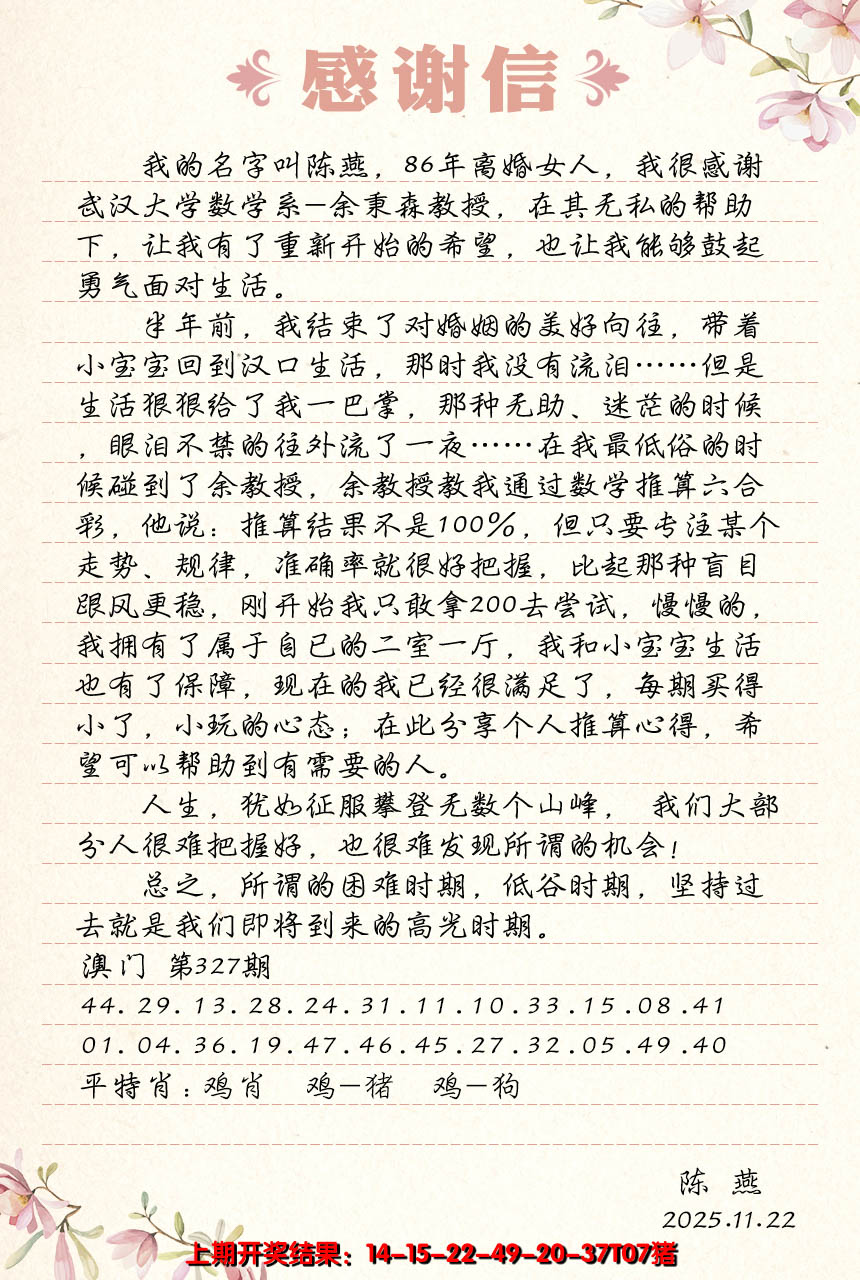 感谢信
我的名字叫陈燕，86年离婚女人，我很感谢
武汉大学数学系—余秉森教授，在其无私的帮助
下，让我有了重新开始的希望，也让我能够鼓起
勇气面对生活。
半年前，我结束了对婚姻的美好向往，带着
小宝宝回到汉口生活，那时我没有流泪……但是
生活狠狠给了我一巴掌，那种无助、迷茫的时候
，眼泪不禁的往外流了一夜……在我最低俗的时
候碰到了余教授，余教授教我通过数学推算六合
彩，他说：推算结果不是100%，但只要专注某个
走势、规律，准确率就很好把握，比起那种盲目
跟风更稳，刚开始我只敢拿200去尝试，慢慢的，
我拥有了属于自已的二室一厅，我和小宝宝生活
也有了保障，现在的我已经很满足了，每期买得
小了，小玩的心态；在此分享个人推算心得，希
望可以帮助到有需要的人。
人生，犹如征服攀登无数个山峰， 我们大部
分人很难把握好，也很难发现所谓的机会！
总之，所谓的困难时期，低谷时期，坚持过
去就是我们即将到来的高光时期。
澳门 第327期
44.29.13.28.24.31.11.10.33.15.08.41
01.04.36.19.47.46.45.27.32.05.49.40
平特肖：鸡肖 鸡—猪 鸡—狗
陈 燕
2025.11.22
上期开奖结果：14-15-22-49-20-37T07猪